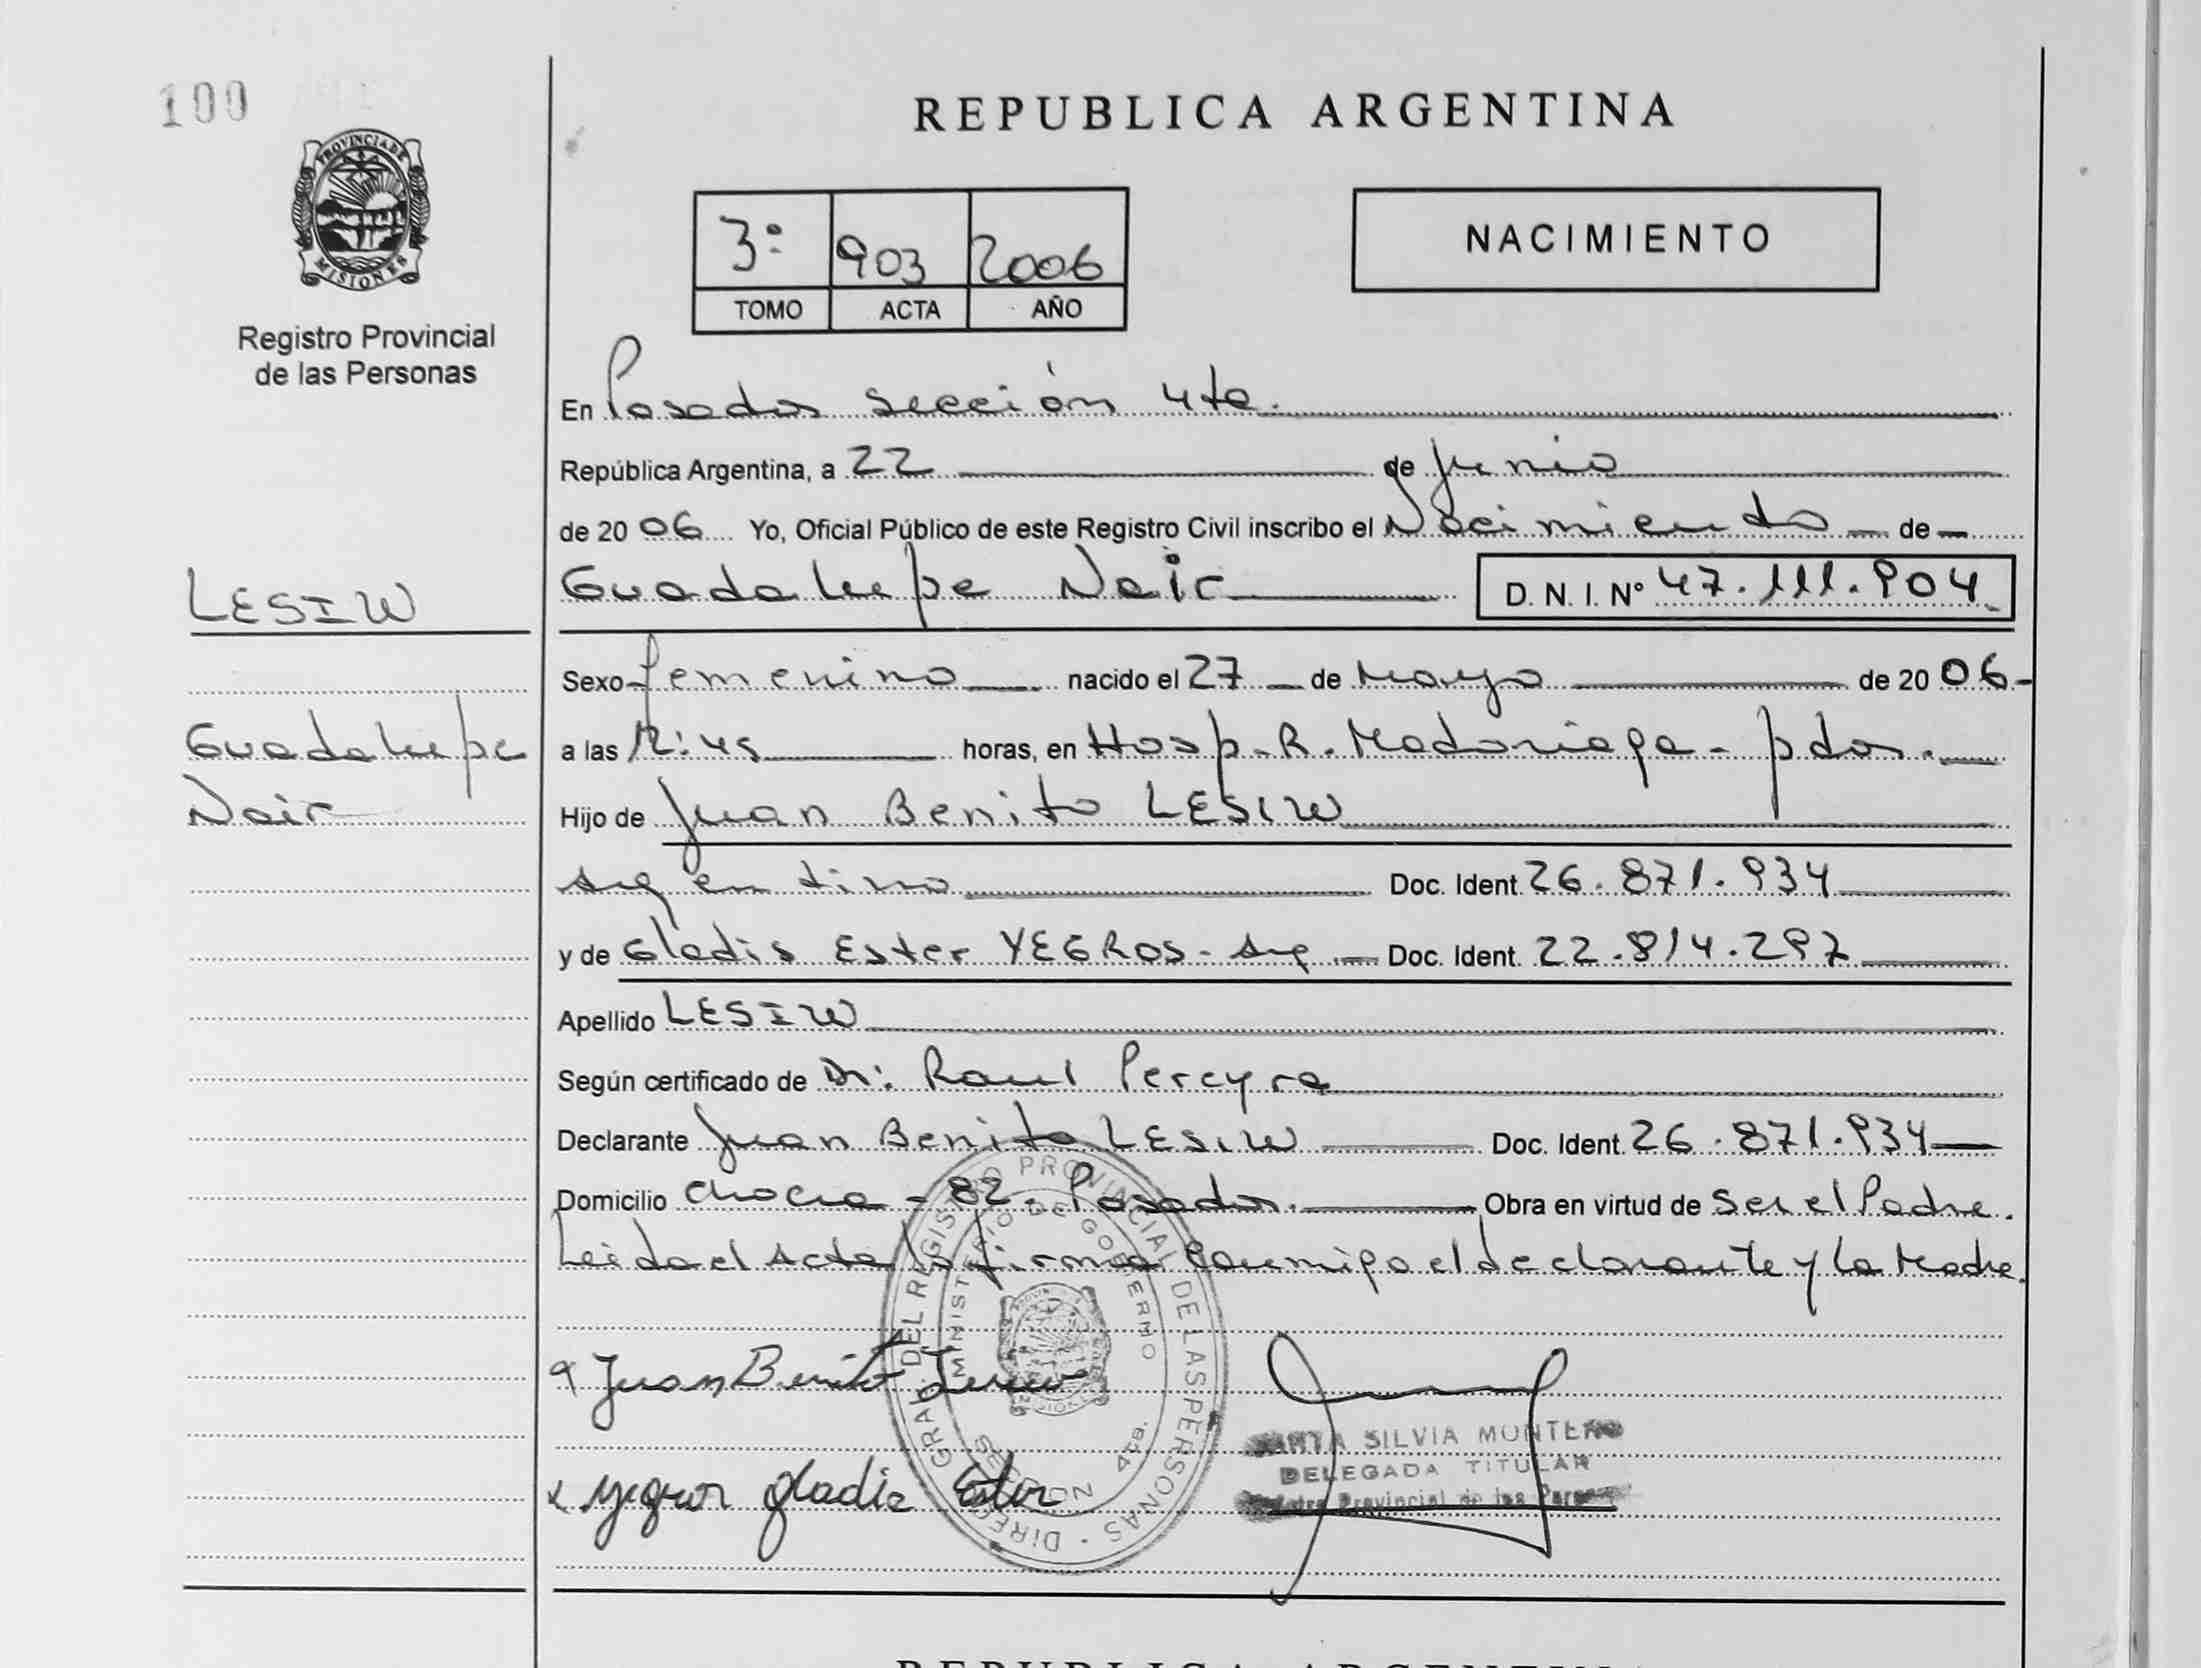 100
PROVINCIA DE
MISIONES
Registro Provincial
de las Personas
REPUBLICA ARGENTINA
3º 903 2006
TOMO ACTA AÑO
NACIMIENTO
En Posadas sección 4ta.
República Argentina, a 22 de Junio
de 20 06 Yo, Oficial Público de este Registro Civil inscribo el Nacimiento de
LESIW
Guadalupe Nair D. N. I. Nº 47.111.904
Sexo femenino nacido el 27 de Mayo de 20 06
Guadalupe
Nair
a las 12:45 horas, en Hosp. R. Madariaga - pdas.
Hijo de Juan Benito LESIW
Argentino Doc. Ident. 26.871.934
y de Gladis Ester YEGROS - Arg Doc. Ident. 22.814.297
Apellido LESIW
Según certificado de Dr. Raul Pereyra
Declarante Juan Benito LESIW Doc. Ident. 26.871.934
Domicilio Chacra - 82. Posadas. Obra en virtud de Ser el Padre.
Leida el Acta la firma Conmigo el declarante y la Madre.
DIREC. GRAL. DEL REGISTRO PROVINCIAL DE LAS PERSONAS
MINISTERIO DE GOBIERNO
SECCION 4ta.
Juan Benito Lesiw
x Yegros Gladis Ester
SILVIA MONTERO
DELEGADA TITULAR
Provincial de las
REPUBLICA ARGENTINA